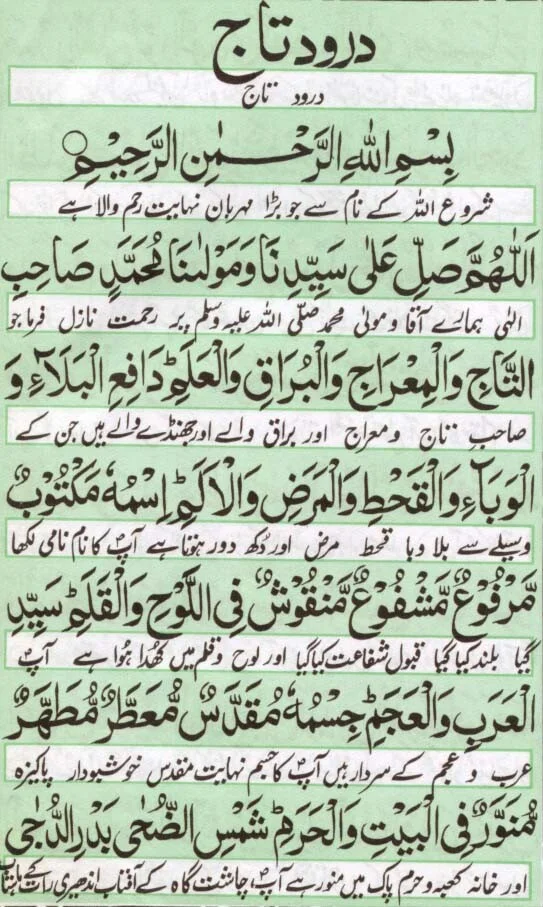 درود تاج
درود تاج
بِسْمِ اللهِ الرَّحْمٰنِ الرَّحِيْمِ○
شروع اللہ کے نام سے جو بڑا مہربان نہایت رحم والا ہے
اَللّٰهُمَّ صَلِّ عَلٰى سَيِّدِنَا وَمَوْلٰىنَا مُحَمَّدٍ صَاحِبِ
الٰہی ہمارے آقا و مولیٰ محمد صلّی اللہ علیہ وسلم پر رحمت نازل فرما جو
التَّاجِ وَالْمِعْرَاجِ وَالْبُرَاقِ وَالْعَلَمِؕ دَافِعِ الْبَلَآءِ وَ
صاحبِ تاج و معراج اور براق والے اور جھنڈے والے ہیں جن کے
الْوَبَآءِ وَالْقَحْطِ وَالْمَرَضِ وَالْاَلَمِؕ اِسْمُهٗ مَكْتُوْبٌ
وسیلے سے بلا وبا قحط مرض اور دُکھ دور ہوتا ہے آپؐ کا نام نامی لکھا
مَّرْفُوْعٌ مَّشْفُوْعٌ مَّنْقُوْشٌ فِى اللَّوْحِ وَالْقَلَمِؕ سَيِّدِ
گیا بلند کیا گیا قبول شفاعت کیا گیا اور لوح و قلم میں کھُدا ہُوا ہے آپؐ
الْعَرَبِ وَالْعَجَمِؕ جِسْمُهٗ مُقَدَّسٌ مُّعَطَّرٌ مُّطَهَّرٌ
عرب و عجم کے سردار ہیں آپؐ کا جسم نہایت مقدس خوشبودار پاکیزہ
مُّنَوَّرٌ فِى الْبَيْتِ وَالْحَرَمِؕ شَمْسِ الضُّحٰى بَدْرِ الدُّجٰى
اور خانہ کعبہ و حرم پاک میں منور ہے آپؐ چاشت گاہ کے آفتاب اندھیری رات کے ماہتاب